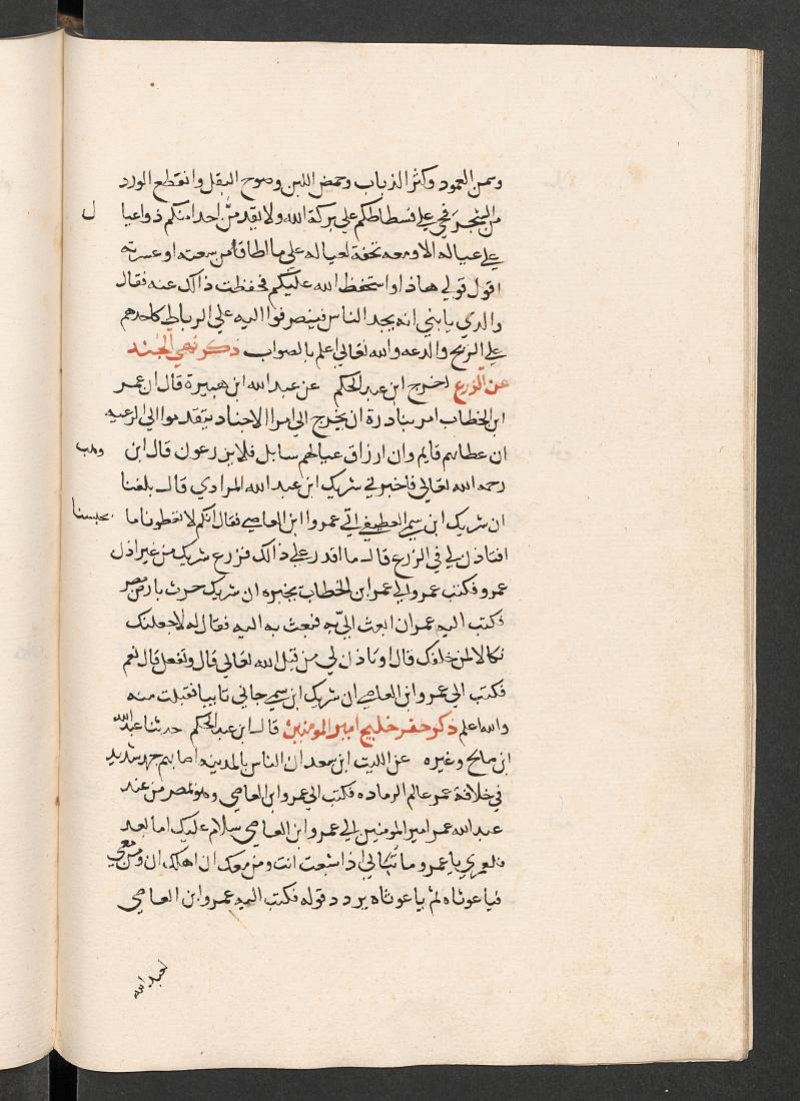 وسمن العمود وكثر الذباب وحمض اللبن وصوح البقل وانقطع الورد
من الشجر فحي على فسطاطكم على بركة الله ولا يقدمن احدا منكم ذوا عيا
ل
على عياله الا ومعه تحفة لعياله على ما اطاقا من سعته او عسرته
اقول قولي هاذا واستحفظ الله عليكم فحفظت ذالك عنه فقال
والدي يابني انه يجد الناس فينصرفوا اليه على الرباطي كما حدهم
على الريح والدعه والله تعالى اعلم بالصواب ذكر نهي الجند
عن الزرع اخرج ابن عبد الحكم عن عبد الله ابن هبيرة قال ان عمر
ابن الخطاب امر بنادرة ان يخرج الى امرا الاجناد يتقدموا الى الرعيه
ان عطاهم قايم وان ارزاق عيالهم سابل فلا يزرعون قال ابن
وهب
رحمه الله تعالى فاخبرني شريك ابن عبد الله المرادي قال بلغنا
ان شريك ابن سمي الغطيفي اتى عمروا ابن العاصي فقال انكم لا تعطوناما
يحبسنا
افتاذن لي في الزرع قال ما اقدر على ذالك فزرع شريك من غير اذن
عمرو فكتب عمرو الى عمر ابن الخطاب يخبره ان شريك حرث بارض مصر
فكتب اليه عمر ان ابعث الي به فبعث به اليه فقال له لاجعلنك
نكالا لمن خلفك قال او تاذن لي من قبل الله تعالى قال وتفعل قال نعم
فكتب الى عمرو ابن العاصي ان شريك ابن سمي جاني تايبا فقبلت منه
والله اعلم ذكر حفر خليج امير المومنين قال ابن عبد الحكم حدثنا عبد الله
ابن صالح وغيره عن الليث ابن سعد ان الناس بالمدينه اصابهم جهد شديد
في خلافة عمر عالم الرماده فكتب الى عمرو ابن العاصي وهو بمصر من عند
عبد الله عمر امير المومنين الى عمرو ابن العاصي سلام عليك اما بعد
فلعمري يا عمرو ما تبالي اذا شبعت انت ومن معك ان اهلك ان ومن معي
فيا غوثاه ثم يا غوثاه يردد قوله فكتب اليه عمرو ابن العاصي
لعبد الله